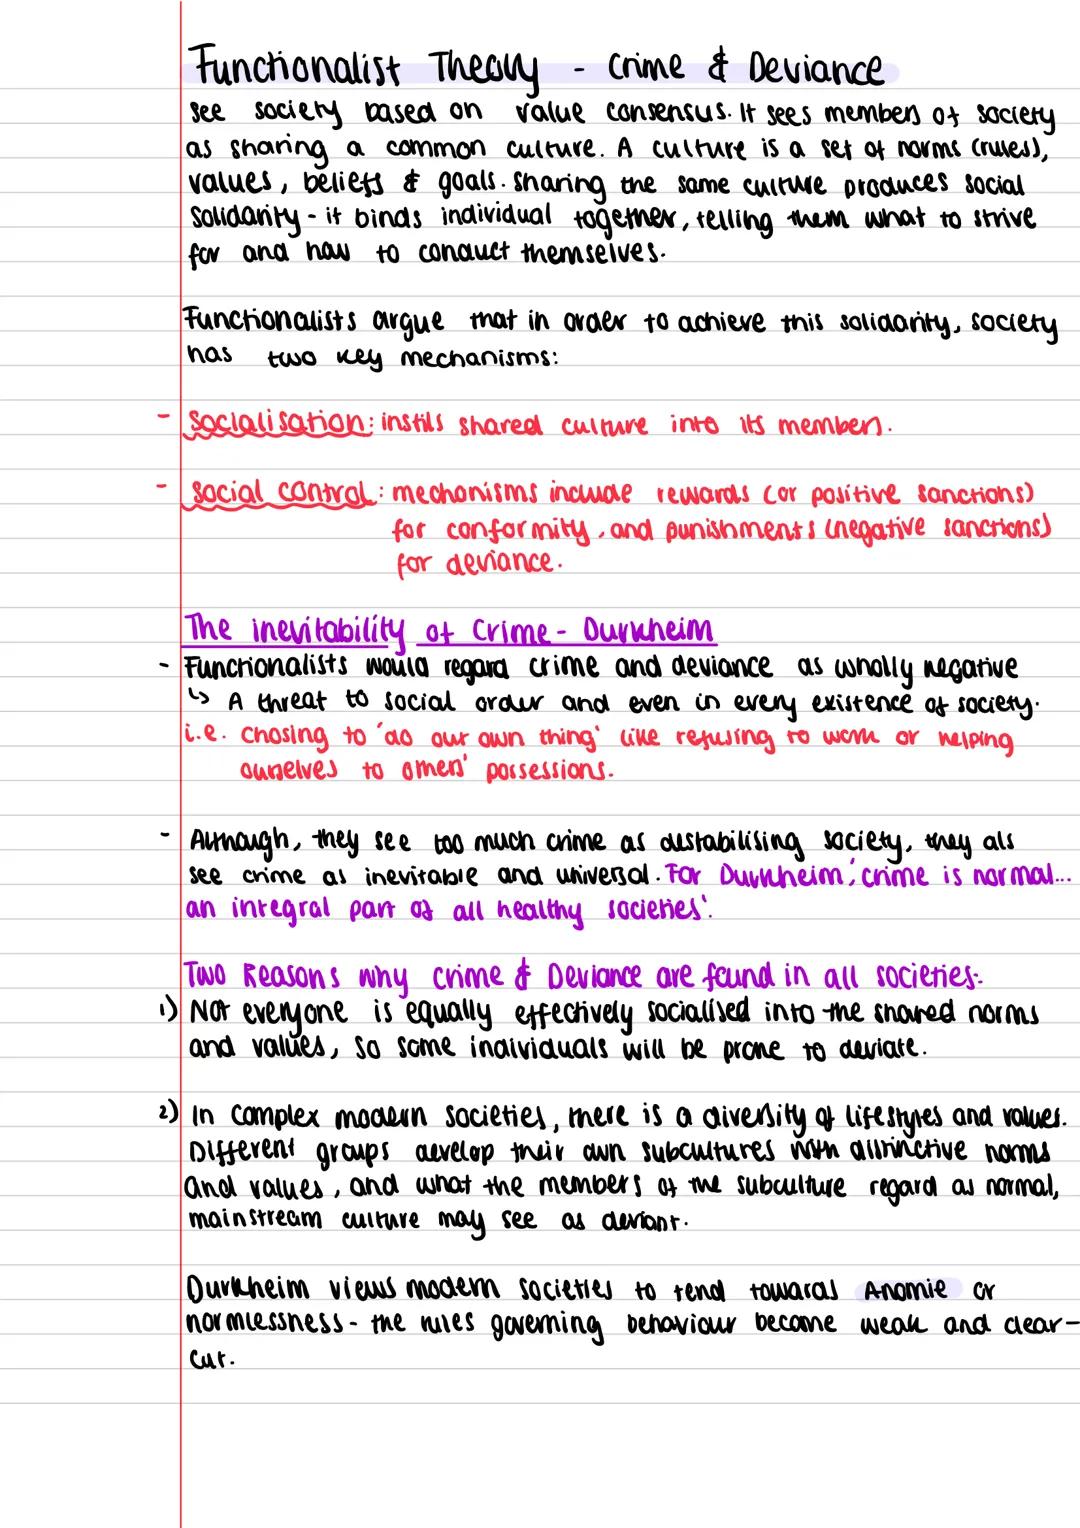 Functionalist Theory - Crime & Deviance
see society based on value consensus. It sees members of society
as sharing a common culture. A culture is a set of norms (rules),
values, beliefs & goals. Sharing the same culture produces social
solidarity - it binds individual together, telling them what to strive
for and how to conduct themselves.
Functionalists argue that in order to achieve this solidarity, society
has two key mechanisms:
- Socialisation: instils shared culture into its members.
- Social control: mechanisms include rewards (or positive sanctions)
for conformity, and punishments (negative sanctions)
for deviance.
The inevitability of Crime - Durkheim
- Functionalists would regard crime and deviance as wholly negative
↳ A threat to social order and even in every existence of society.
i.e. chosing to 'do our own thing' like refusing to work or helping
ourselves to others' possessions.
- Although, they see too much crime as destabilising society, they als
see crime as inevitable and universal. For Durkheim, 'crime is normal...
an integral part of all healthy societies'.
Two Reasons why crime & Deviance are found in all societies:
1) Not everyone is equally effectively socialised into the shared norms
and values, so some individuals will be prone to deviate.
2) In complex modern societies, there is a diversity of lifestyles and values.
Different groups develop their own subcultures with distinctive norms
and values, and what the members of the subculture regard as normal,
mainstream culture may see as deviant.
Durkheim views modern societies to tend towards Anomie or
normlessness - the rules governing behaviour become weak and clear-
cut.